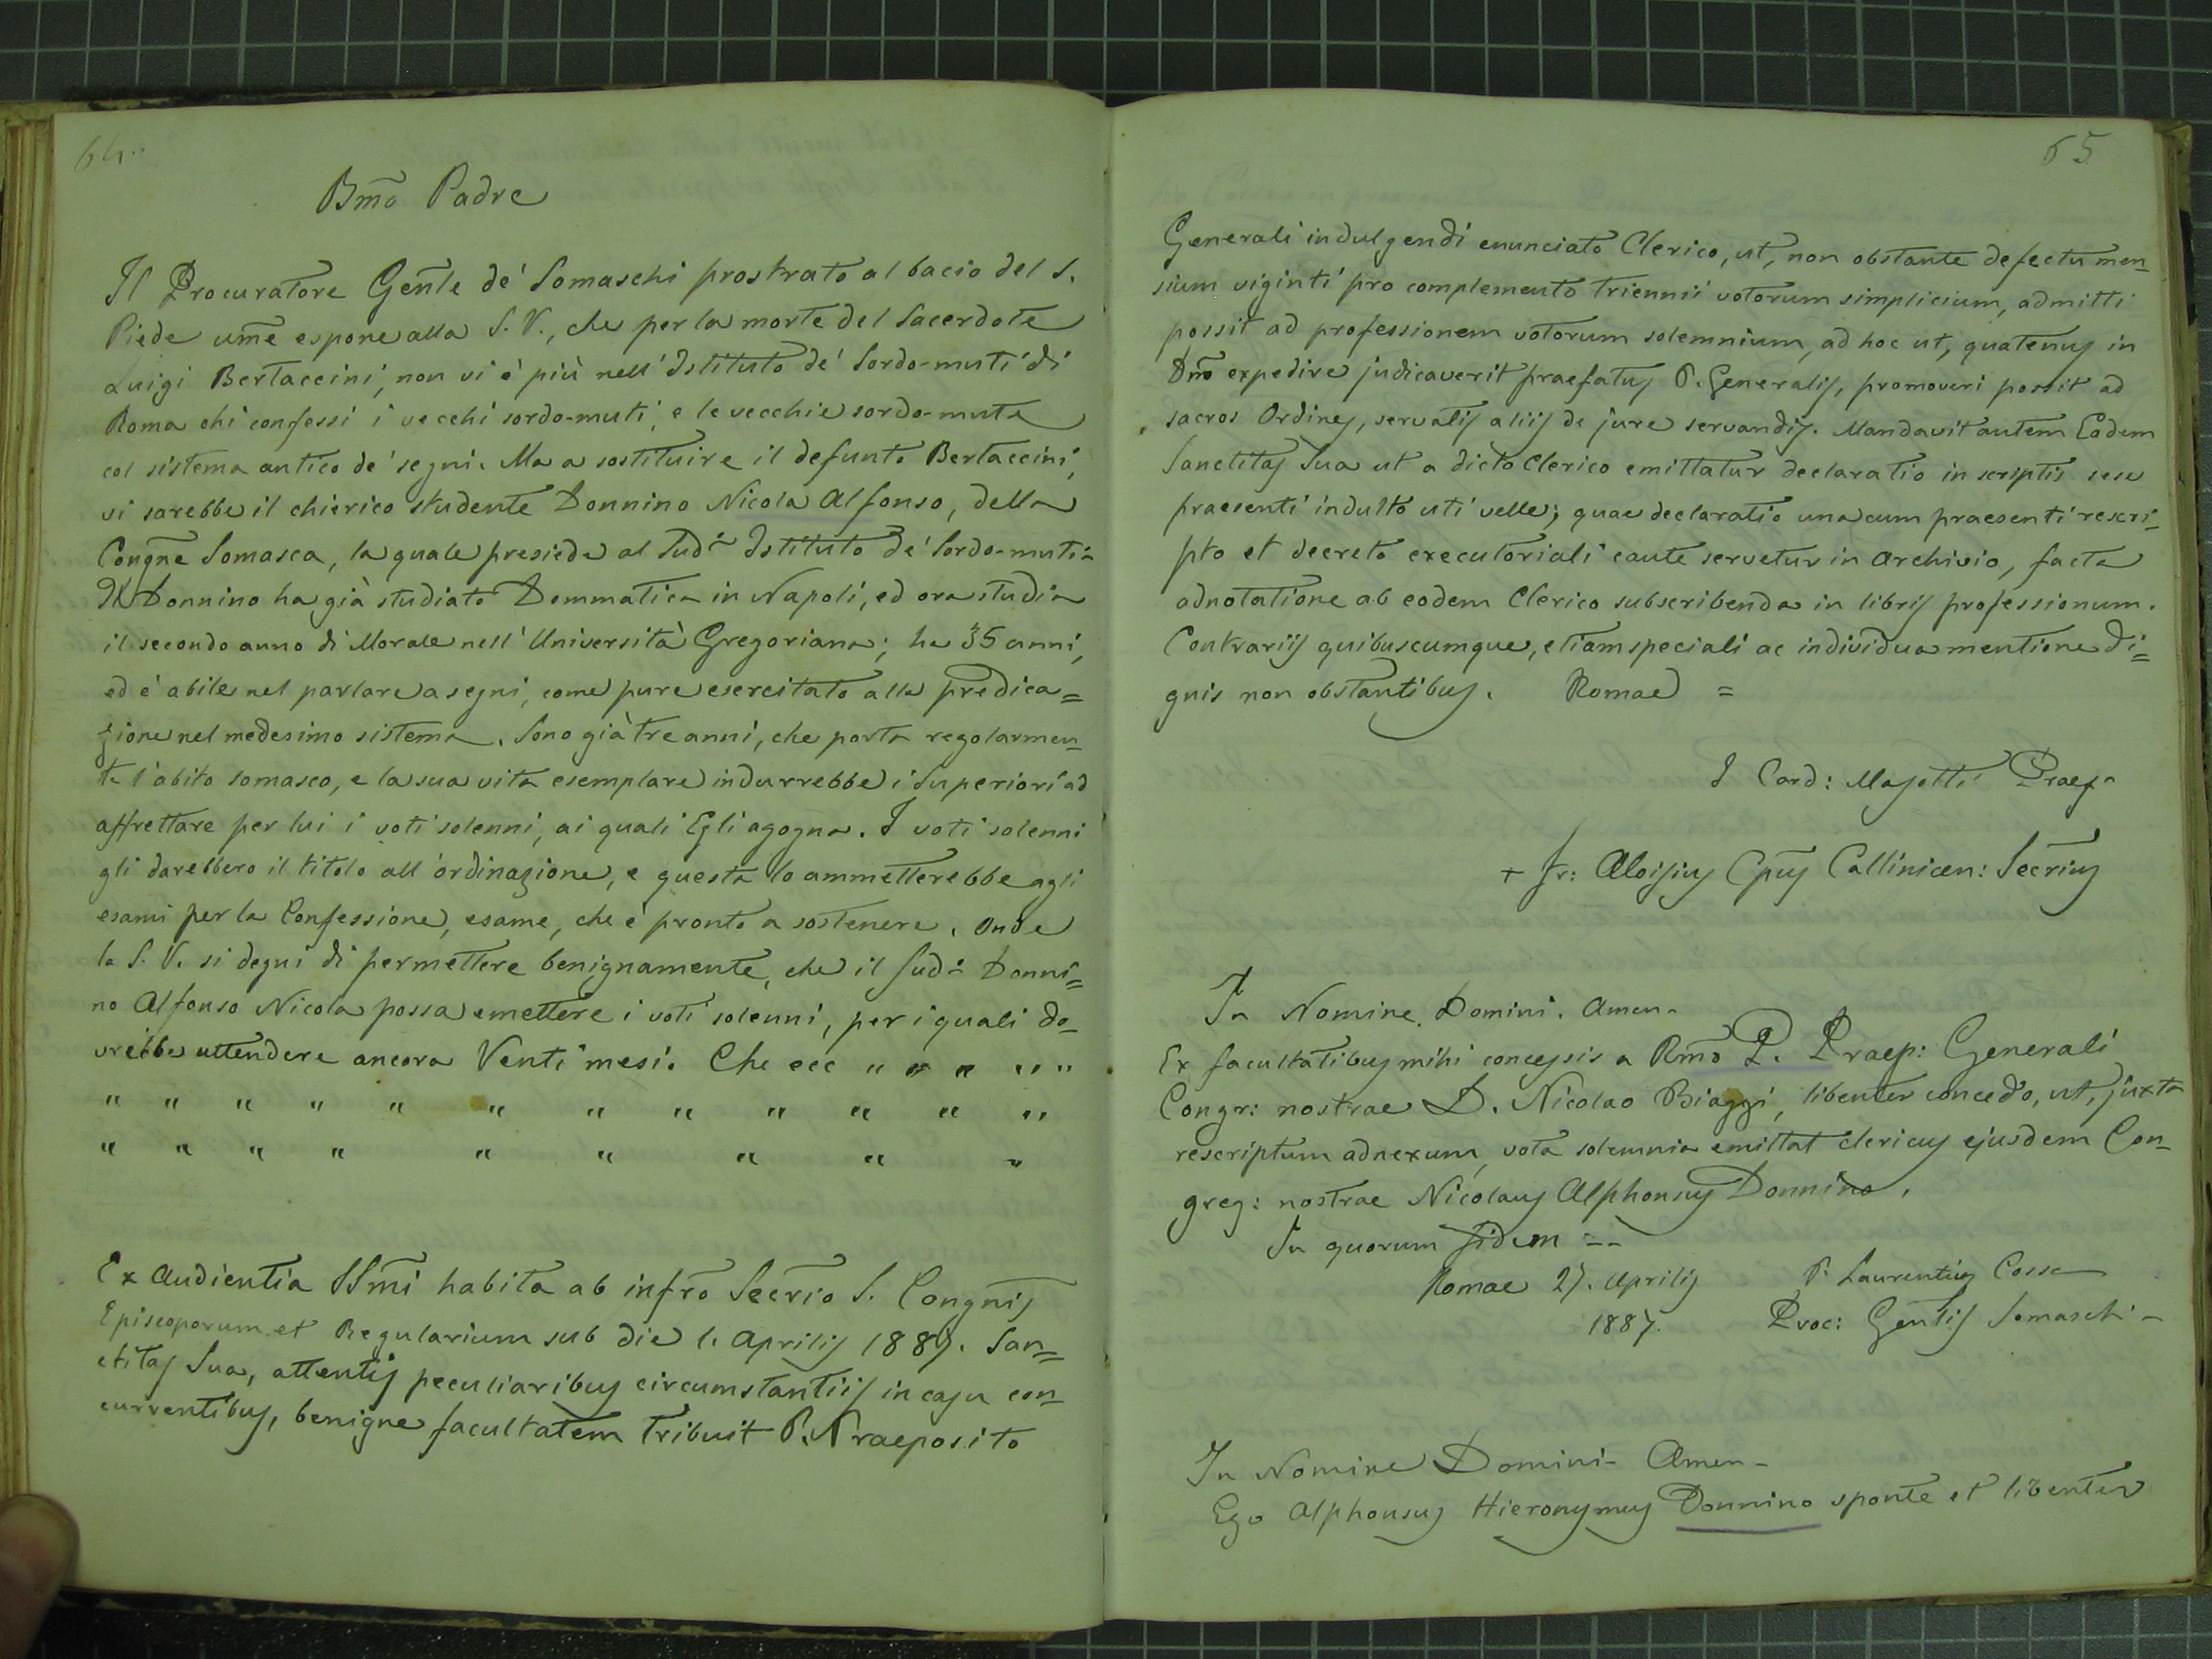 64..
Bm̃o Padre
Il Procuratore Gen̄le de' Somaschi prostrato al bacio del S.
Piede um̄e espone alla S. V., che per la morte del Sacerdote
Luigi Bertaccini, non vi è più nell'Istituto de' Sordo-muti di
Roma chi confessi i vecchi sordo-muti, e le vecchie sordo-mute
col sistema antico de' segni. Ma a sostituire il defunto Bertaccini,
vi sarebbe il chierico studente Donnino Nicola Alfonso, della
Congñe Somasca, la quale presiede al Sud.º Istituto de' Sordo-muti.
Il Donnino ha già studiato Dommatica in Napoli, ed ora studia
il secondo anno di Morale nell'Università Gregoriana; ha 35 anni,
ed è abile nel parlare a segni, come pure esercitato alla predica=
zione nel medesimo sistema. Sono già tre anni, che porta regolarmen=
te l'abito somasco, e la sua vita esemplare indurrebbe i Superiori ad
affrettare per lui i voti solenni, ai quali Egli agogna. I voti solenni
gli darebbero il titolo all'ordinazione, e questa lo ammetterebbe agli
esami per la Confessione, esame, che è pronto a sostenere. Onde
la S. V. si degni di permettere benignamente, che il Sud.º Donni=
no Alfonso Nicola possa emettere i voti solenni, per i quali do=
vrebbe attendere ancora Venti mesi. Che ecc " " " " "
" " " " " " " " " " " "
" " " " " " " " "
Ex Audientia SSm̃i habita ab infr̃o Secr̃io S. Congnis
Episcoporum et Regularium sub die 1. Aprilis 1887. San=
ctitas Sua, attentis peculiaribus circumstantiis in casu con=
currentibus, benigne facultatem tribuit P. Praeposito
65
Generali indulgendi enunciato Clerico, ut, non obstante defectu men=
sium viginti pro complemento triennii votorum simplicium, admitti
possit ad professionem votorum solemnium, ad hoc ut, quatenus in
Dño expedire judicaverit praefatus P. Generalis, promoveri possit ad
sacros Ordines, servatis aliis de jure servandis. Mandavit autem Eadem
Sanctitas Sua ut a dicto Clerico emittatur declaratio in scriptis sese
praesenti indulto uti velle; quae declaratio una cum praesenti rescri=
pto et decreto executoriali caute servetur in Archivio, facta
adnotatione ab eodem Clerico subscribenda in libris professionum.
Contrariis quibuscumque, etiam speciali ac individua mentione di=
gnis non obstantibus. Romae =
I Card: Masotti Praef.
+ Fr: Aloisius Epus Callinicen: Secr̃ius
In Nomine Domini. Amen.
Ex facultatibus mihi concessis a Rm̃o P. Praep: Generali
Congr: nostrae D. Nicolao Biaggi, libenter concedo, ut, juxta
rescriptum adnexum, vota solemnia emittat clericus ejusdem Con=
greg: nostrae Nicolaus Alphonsus Donnino.
In quorum fidem --
Romae 27. Aprilis
1887.
P. Laurentius Cossa
Proc: Gen̄lis Somasch.
In Nomine Domini- Amen-
Ego Alphonsus Hieronymus Donnino sponte et libenter